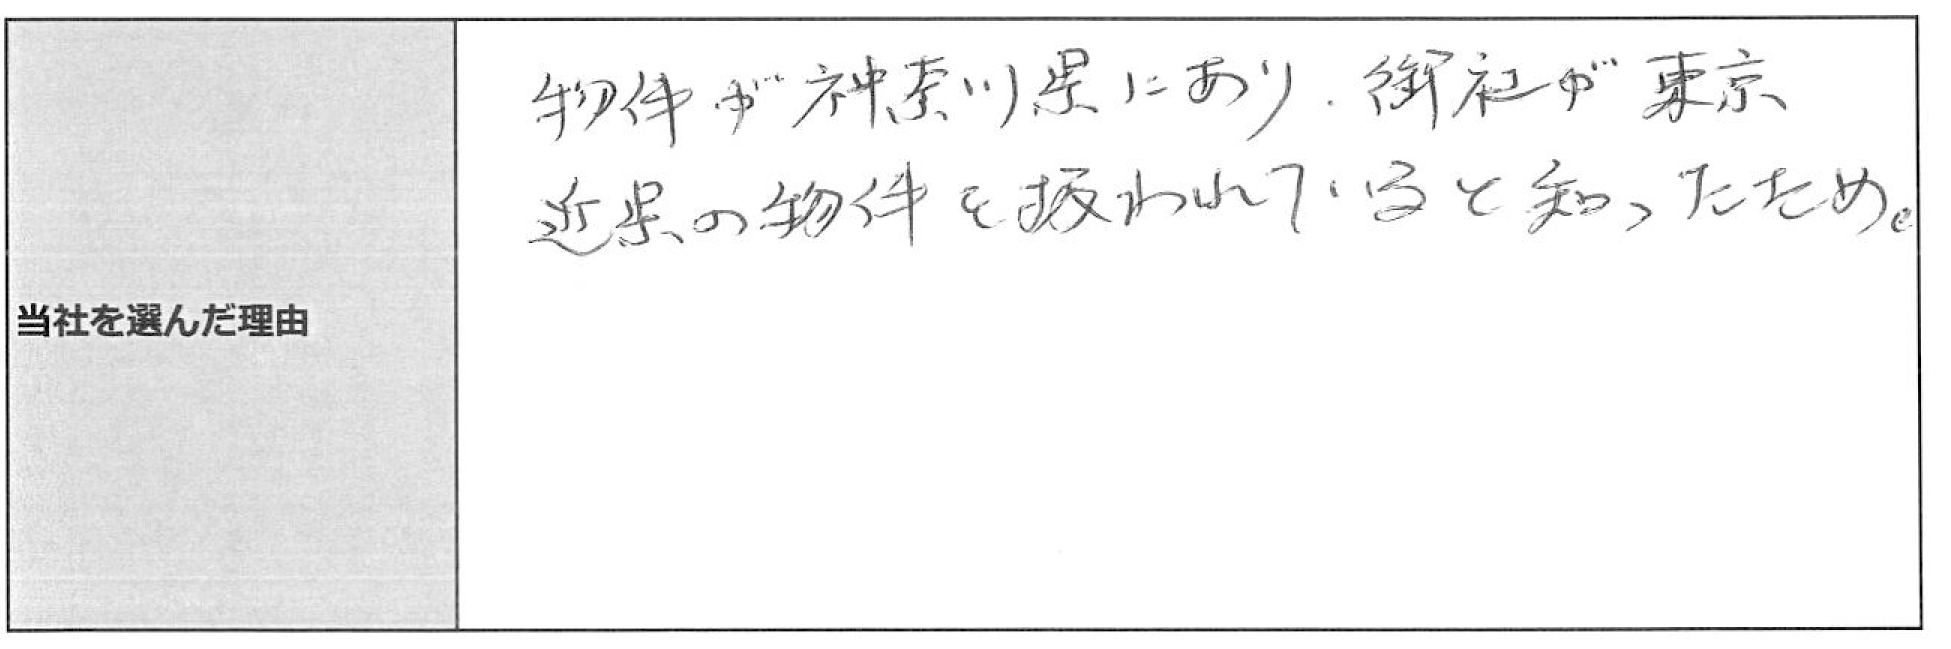 当社を選んだ理由
物件が神奈川県にあり、御社が東京
近県の物件を扱われていると知ったため。